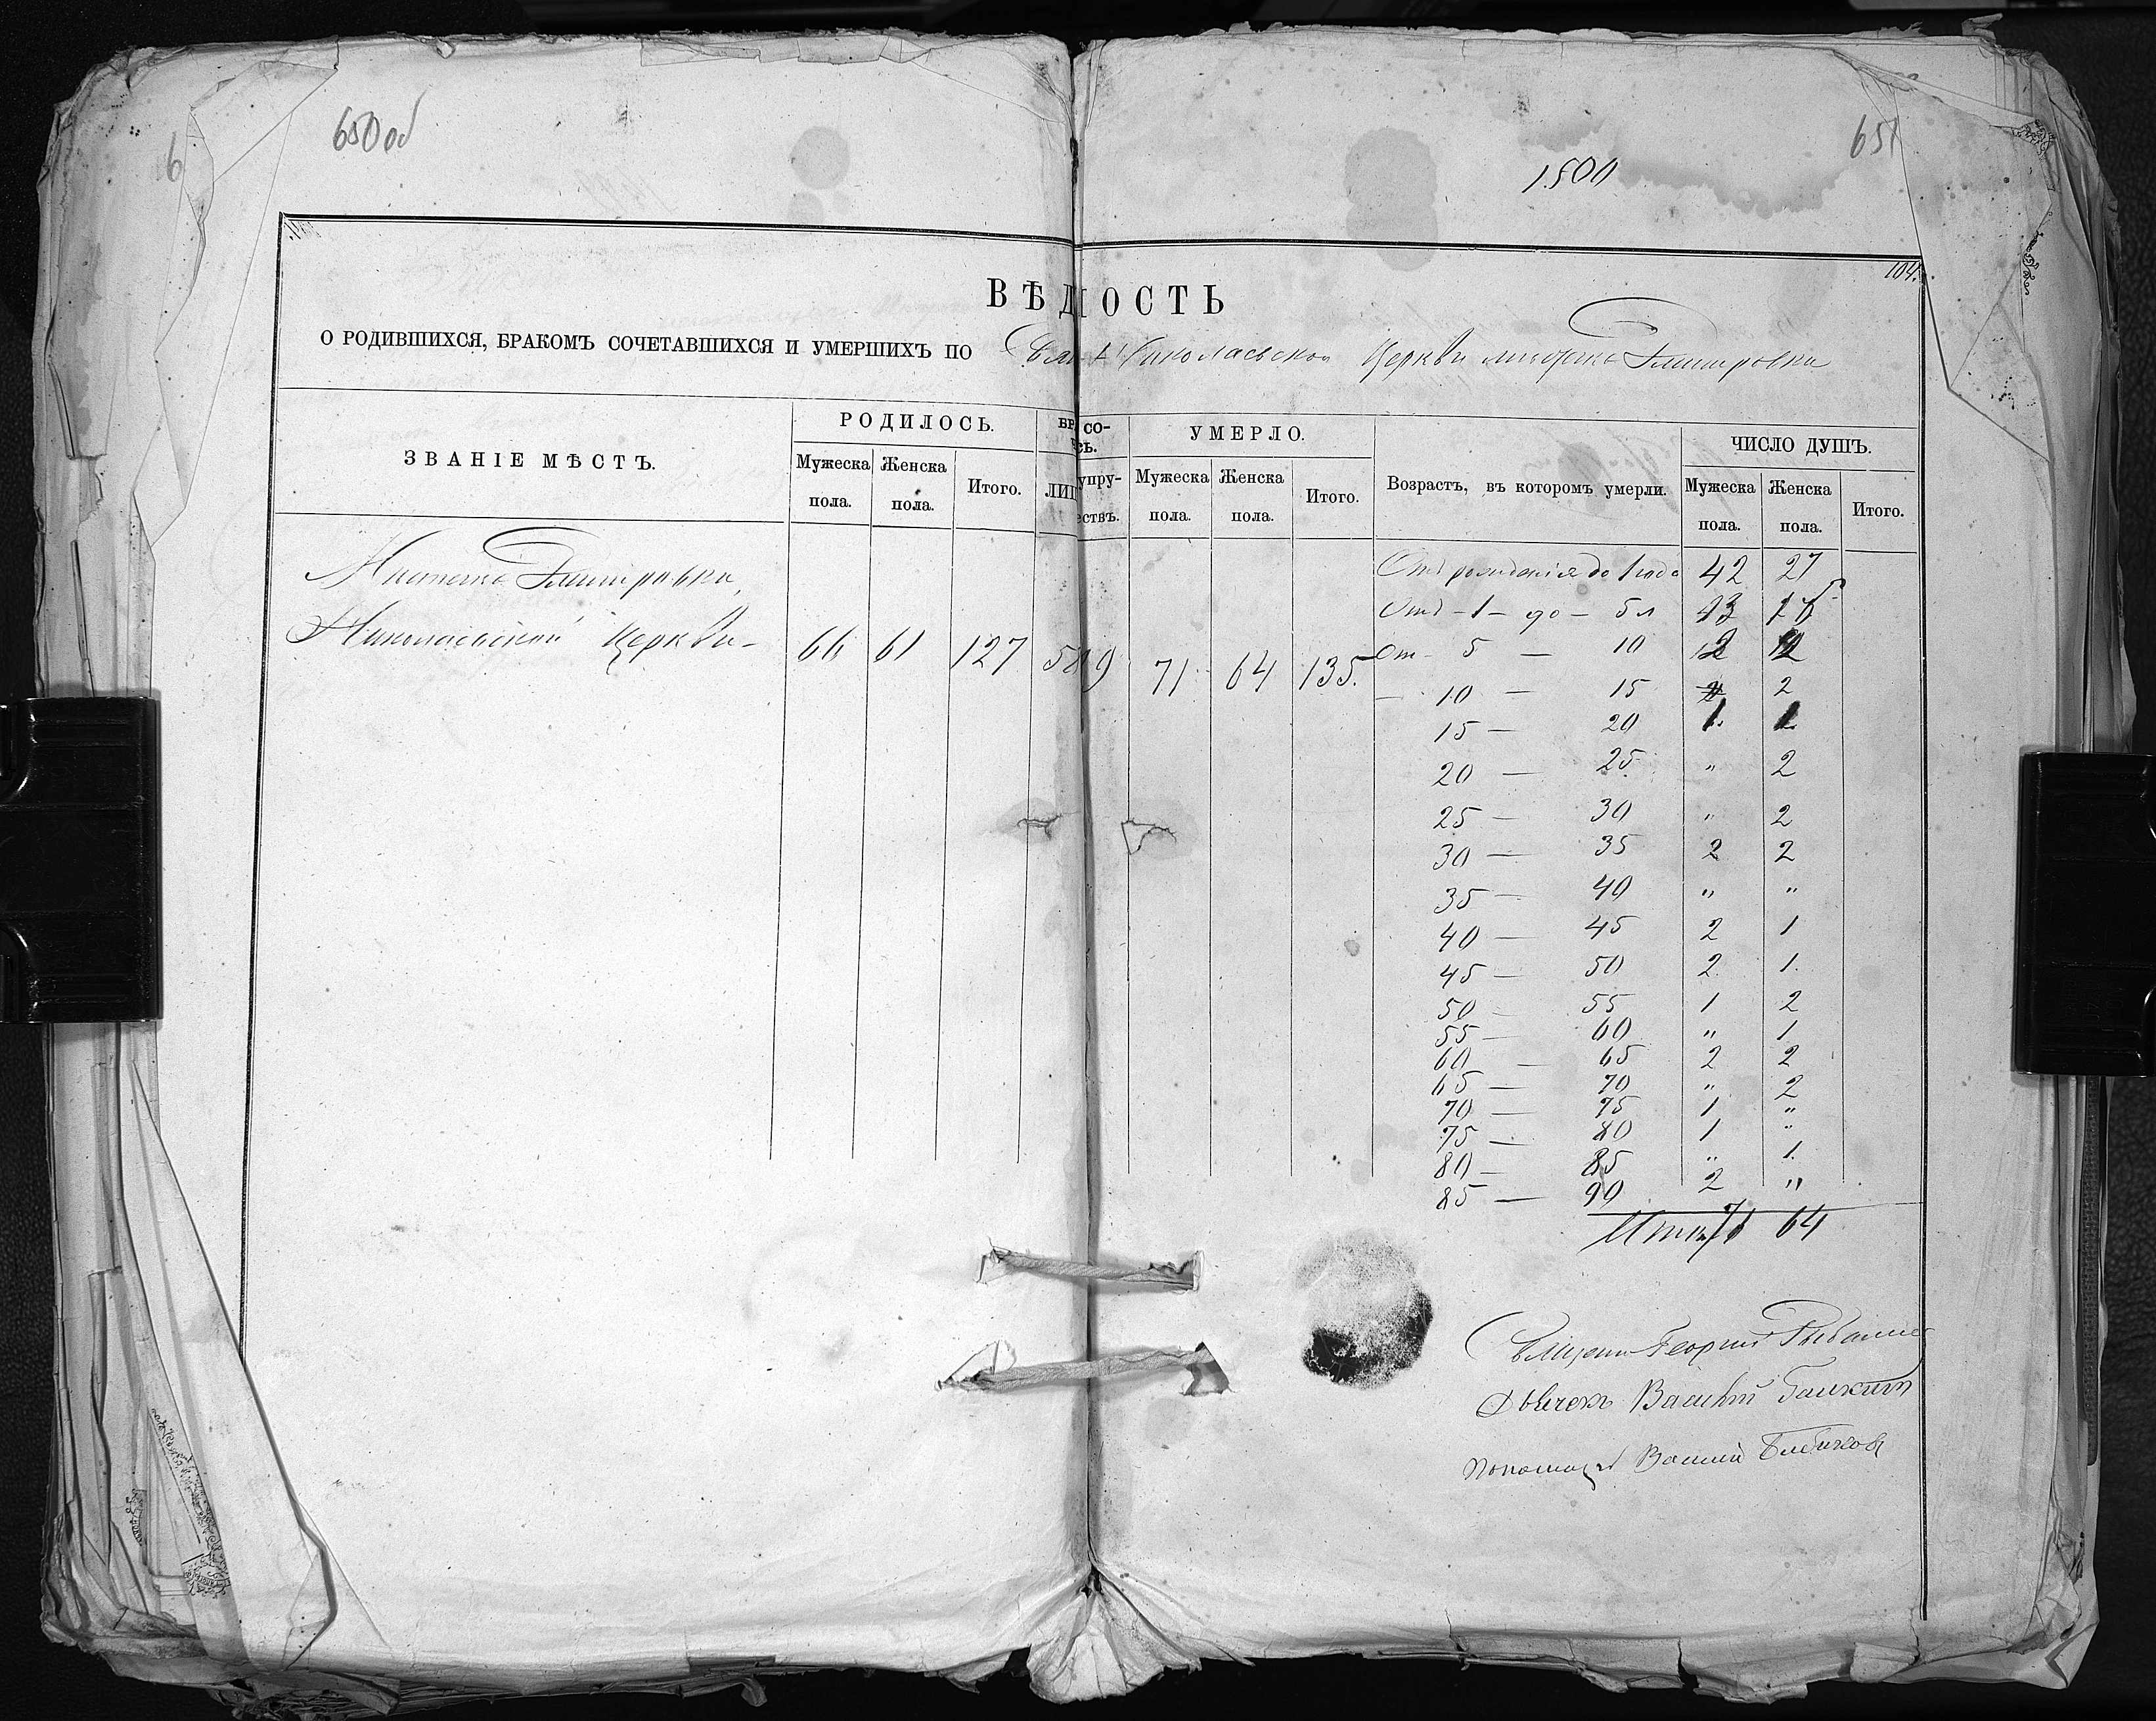 650об
651
1500
104.
ВѢДМОСТЬ
О РОДИВШИХСЯ, БРАКОМЪ СОЧЕТАВШИХСЯ И УМЕРШИХЪ ПО Николаевской Церкви Дмитровки
ЗВАНІЕ МѢСТЪ.
РОДИЛОСЬ.
Мужеска пола.
Женска пола.
Итого.
УМЕРЛО.
Мужеска пола.
Женска пола.
Итого.
Возрастъ, въ которомъ умерли.
ЧИСЛО ДУШЪ.
Мужеска пола.
Женска пола.
Итого.
Дмитровки,
Николаевской Церкви-
66 61 127 71 64 135.
Отъ рожденія до 1 года 42 27
Отъ - 1 - до - 5 л 13
От - 5 — 10
— 10 — 15 2
15 — 20 1. 1
20 — 25 " 2
25 — 30 " 2
30 — 35 2 2
35 — 40 " "
40 — 45 2 1
45 — 50 2 1.
50 — 55 1 2
55 — 60 " 1
60 — 65 2 2
65 — 70 " 2
70 — 75 1 "
75 — 80 1 "
80 — 85 " 1.
85 — 90 2 "
Итого 71 64
Георгій
Василій
Василій